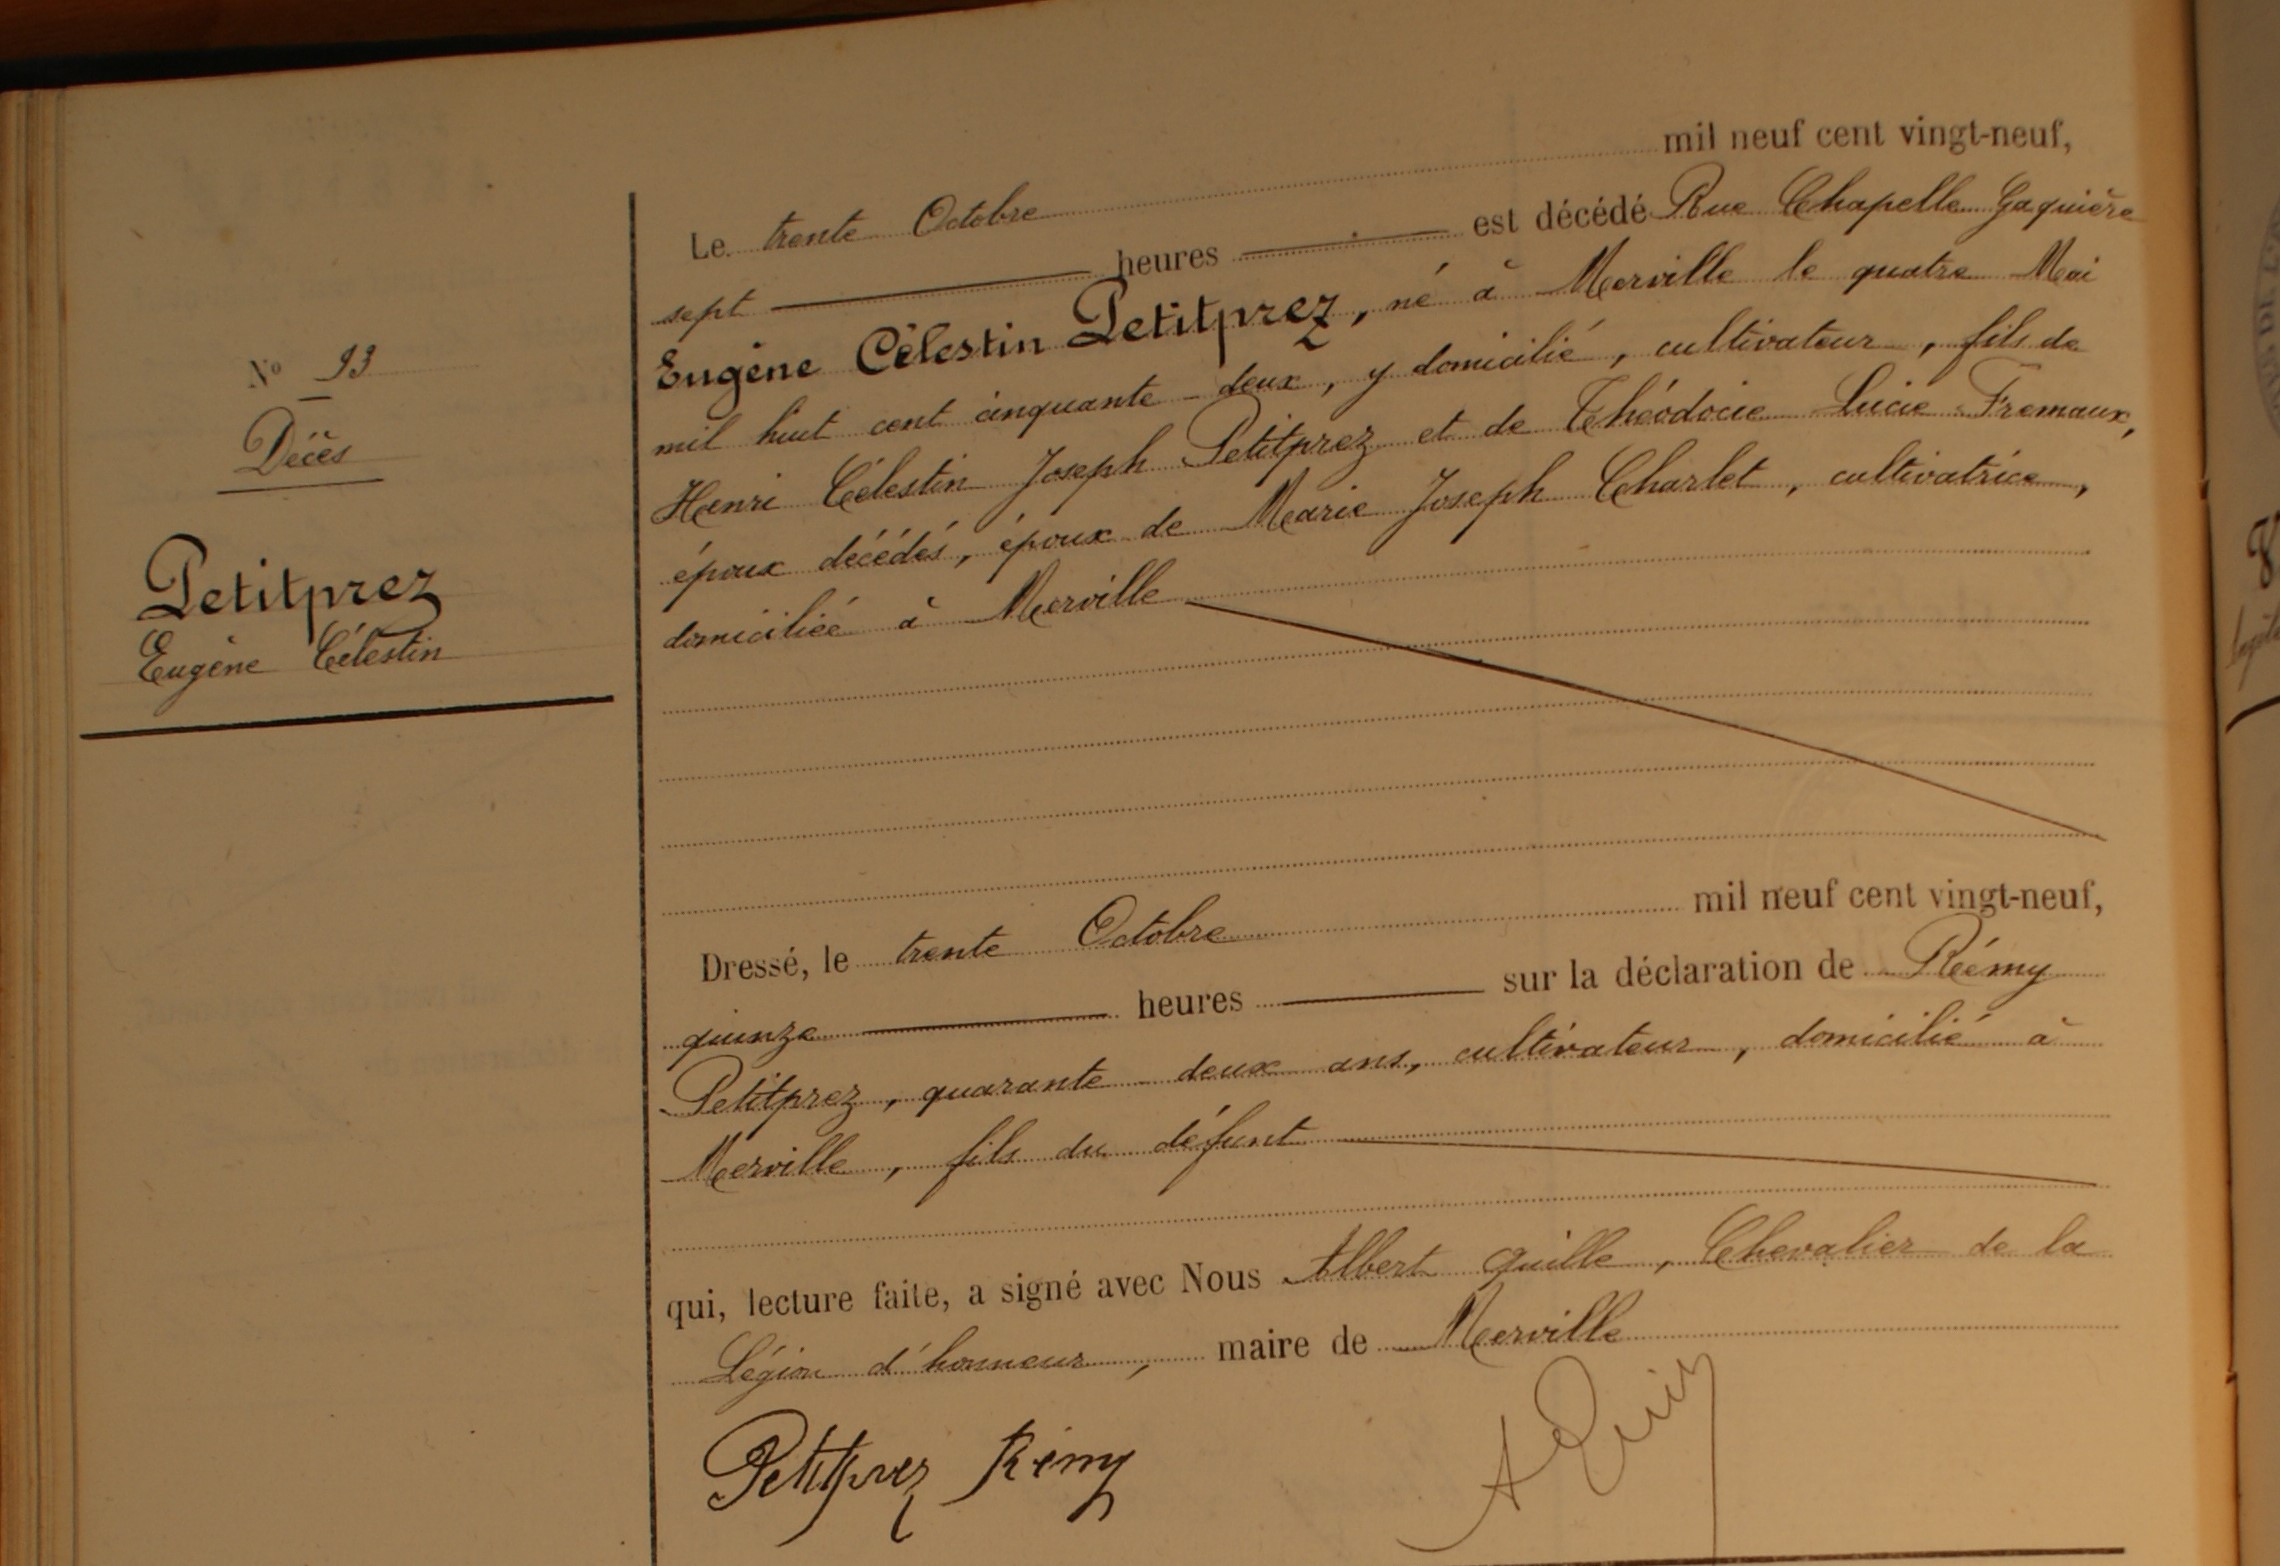 N° 93
Décès
Petitprez
Eugène Célestin
Le trente Octobre mil neuf cent vingt-neuf,
sept heures est décédé Rue Chapelle Gaquière
Eugène Célestin Petitprez, né à Merville le quatre Mai
mil huit cent cinquante-deux, y domicilié, cultivateur, fils de
Henri Célestin Joseph Petitprez et de Théodocie Lucie Fremaux,
époux décédés, époux de Marie Joseph Charlet, cultivatrice,
domiciliée à Merville
Dressé, le trente Octobre mil neuf cent vingt-neuf,
quinze heures sur la déclaration de Rémy
Petitprez, quarante-deux ans, cultivateur, domicilié à
Merville, fils du défunt
qui, lecture faite, a signé avec Nous Albert Quille, Chevalier de la
Légion d'honneur, maire de Merville
Petitprez Rémy